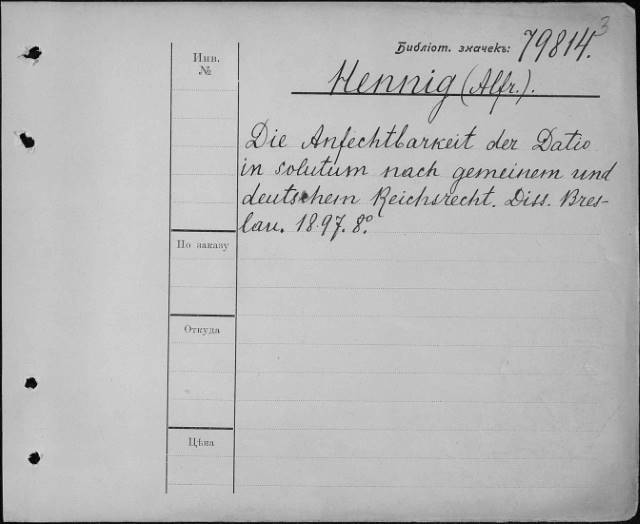 3
Библіот. значекъ: 79814.
Инв.
№
Hennig (Alfr.).
Die Anfechtbarkeit der Datio
in solutum nach gemeinem und
deutschem Reichsrecht. Diss. Bres-
lau. 1897. 8º.
По заказу
Откуда
Цѣна